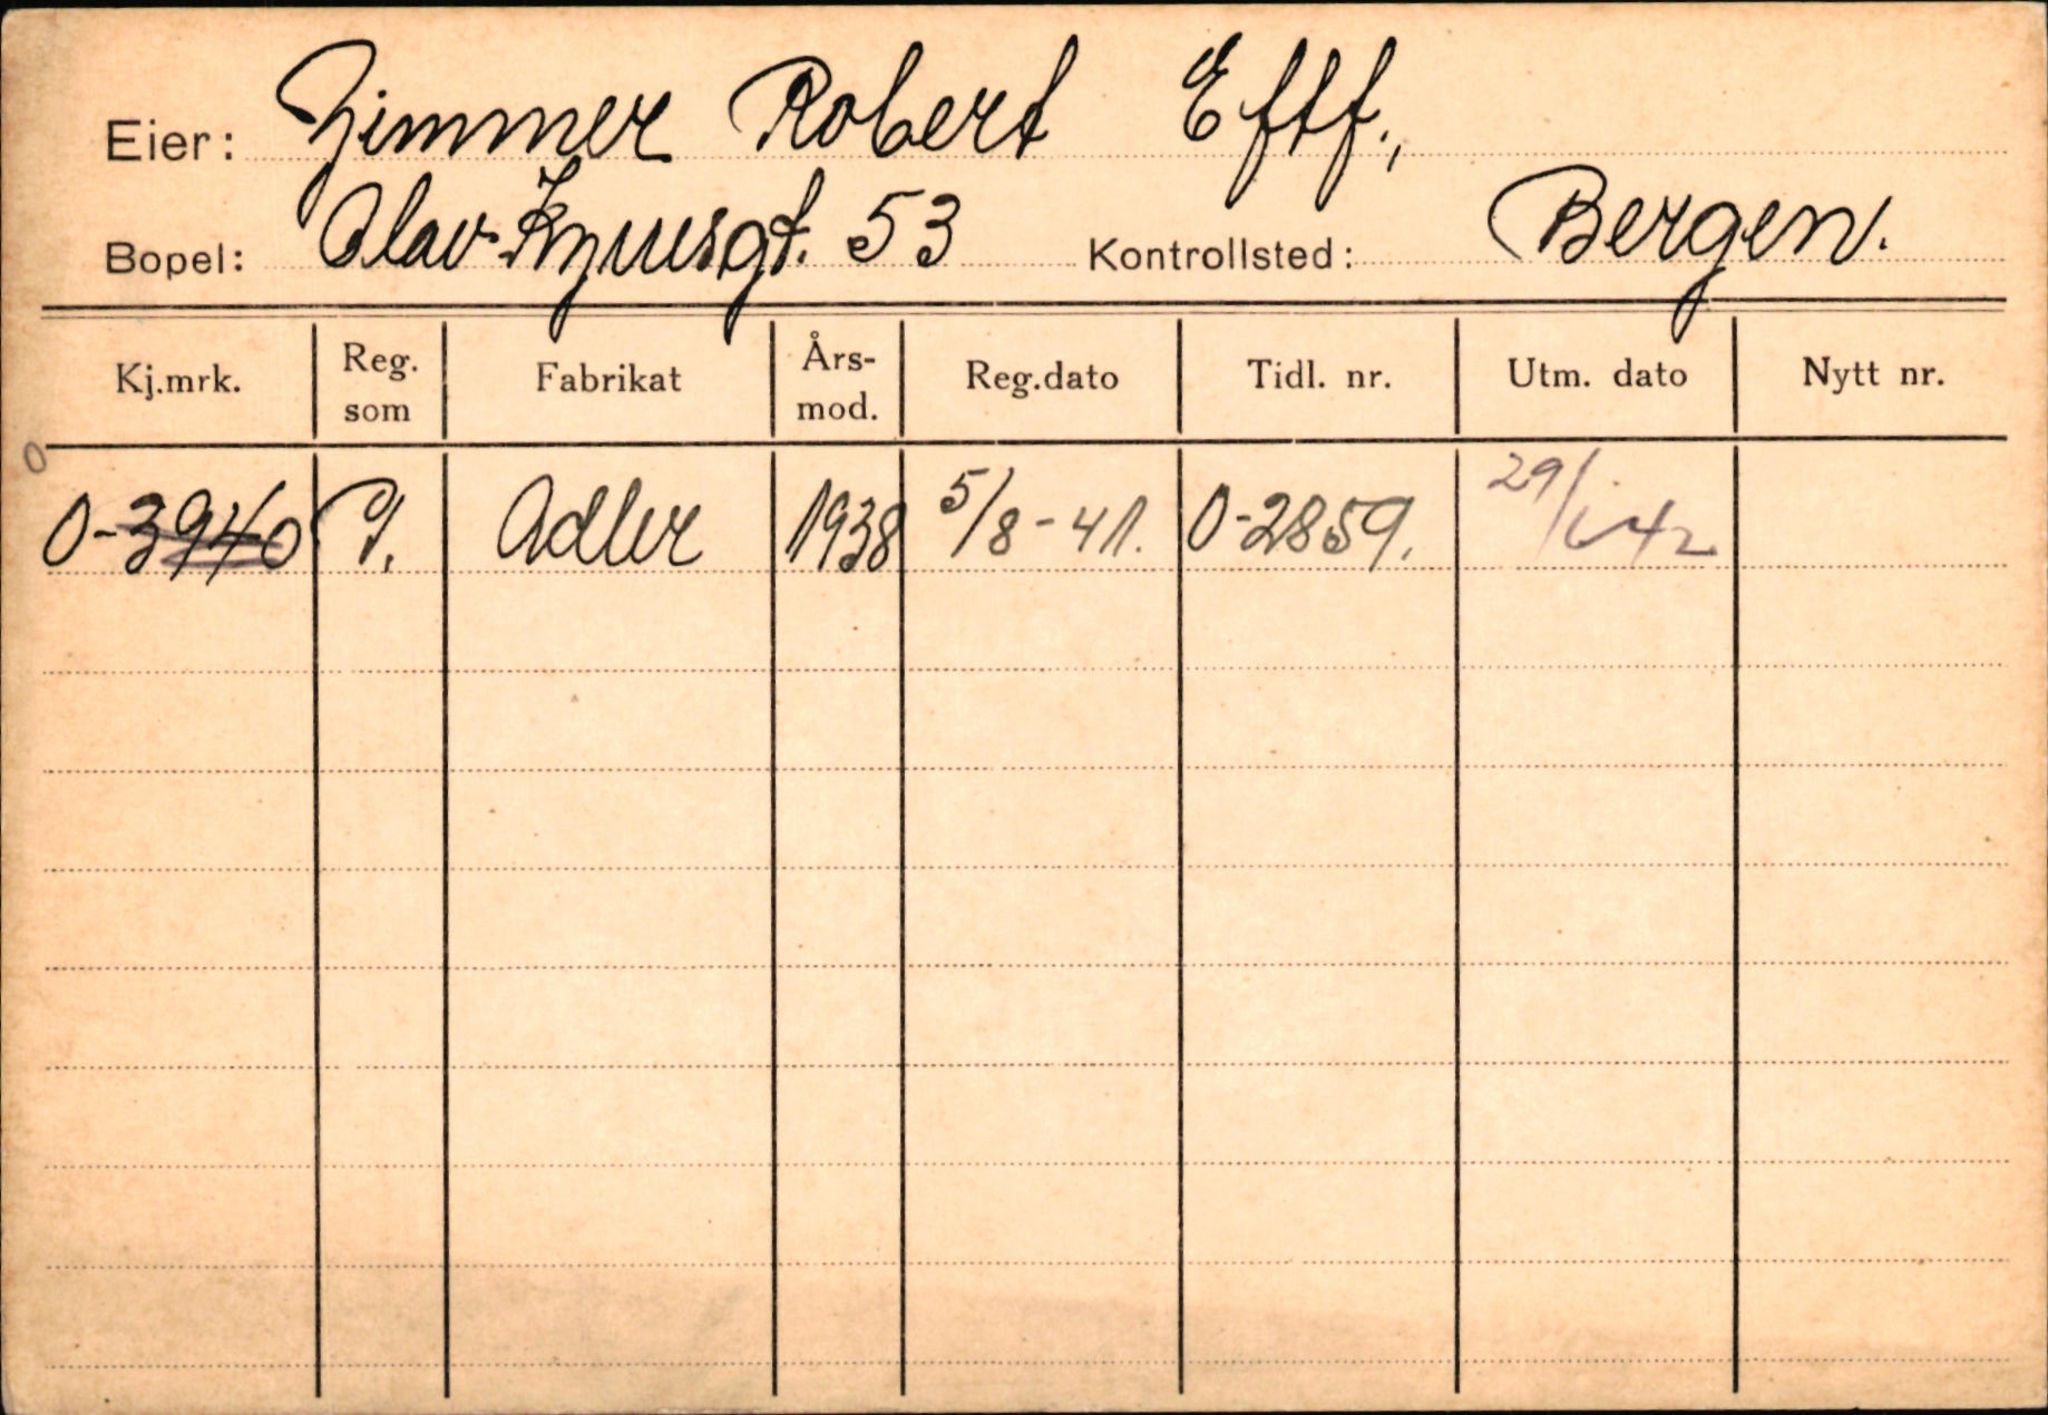 Eier: Zimmer Robert Eftf.,
Bopel: Olav Kyrresgt. 53 Kontrollsted: Bergen.
Kj.mrk. Reg. som Fabrikat Års- mod. Reg.dato Tidl. nr. Utm. dato Nytt nr.
O
O-3940 P. Adler 1938 5/8-41. O-2859. 29/6-42